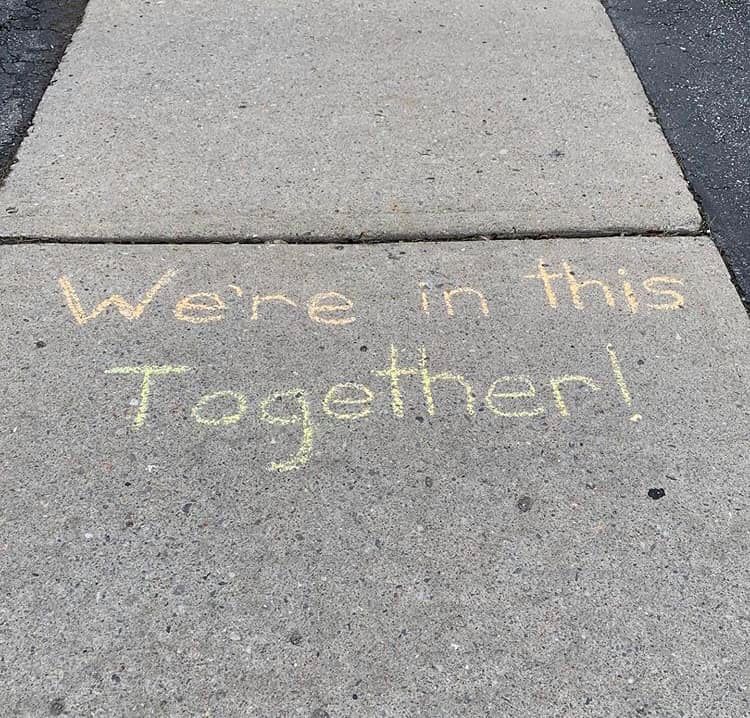 We're in this
Together!